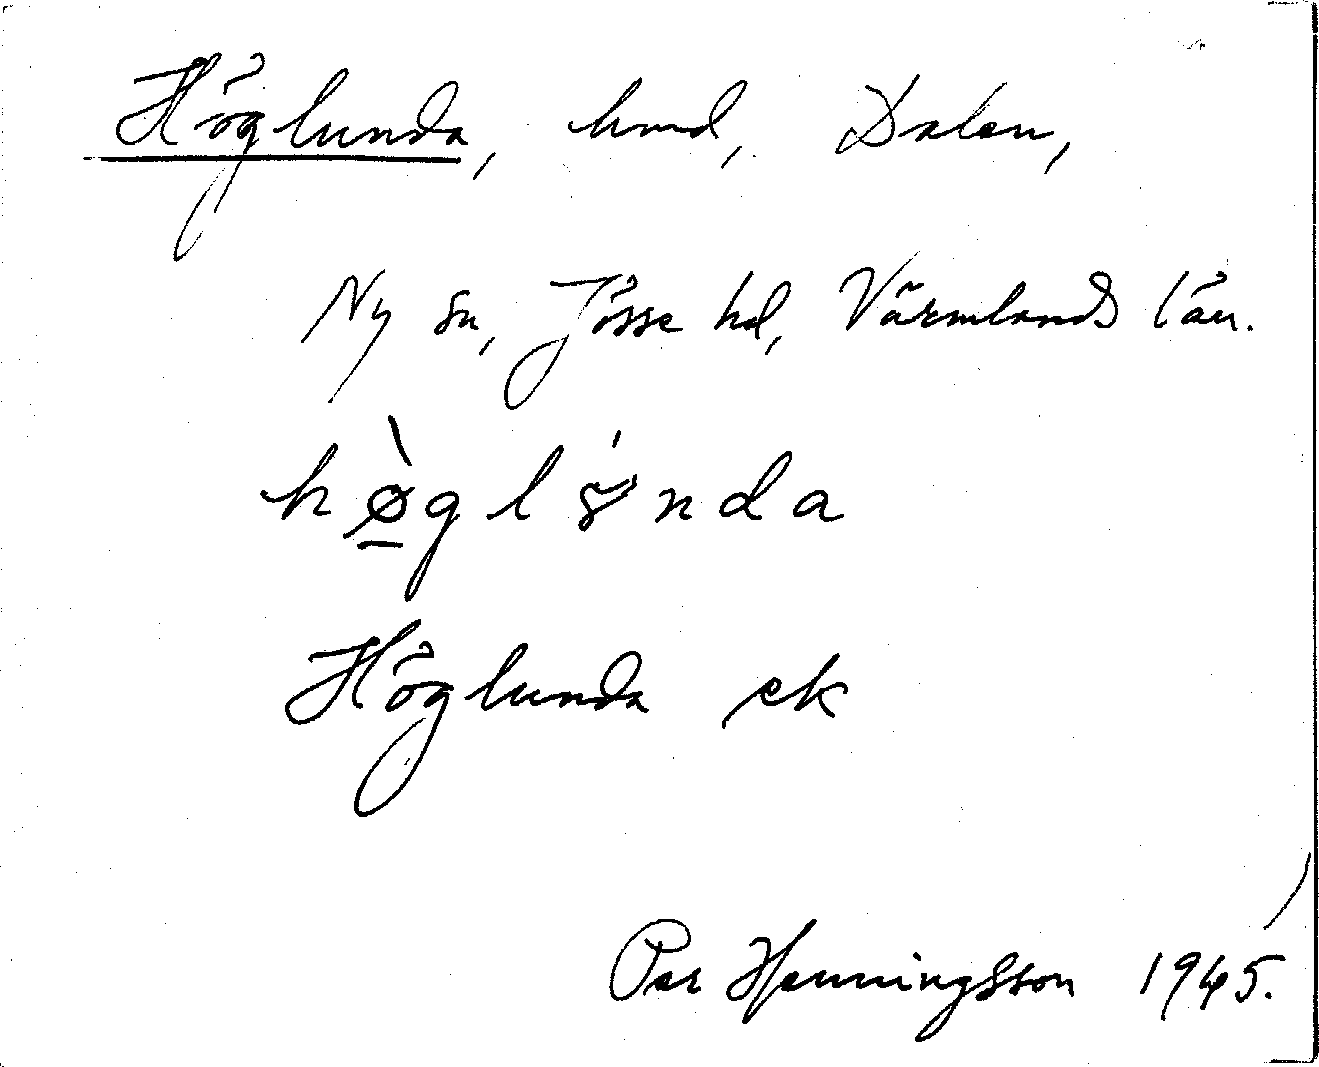 Höglunda, hmd, Dalen,
Ny sn, Jösse hd, Värmlands län.
Höglunda ek
Per Henningsson 1945.